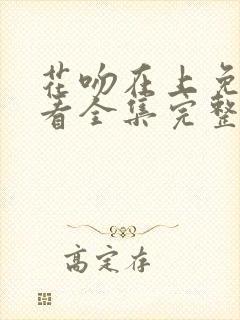 花吻在上免
看全集完整
高定存